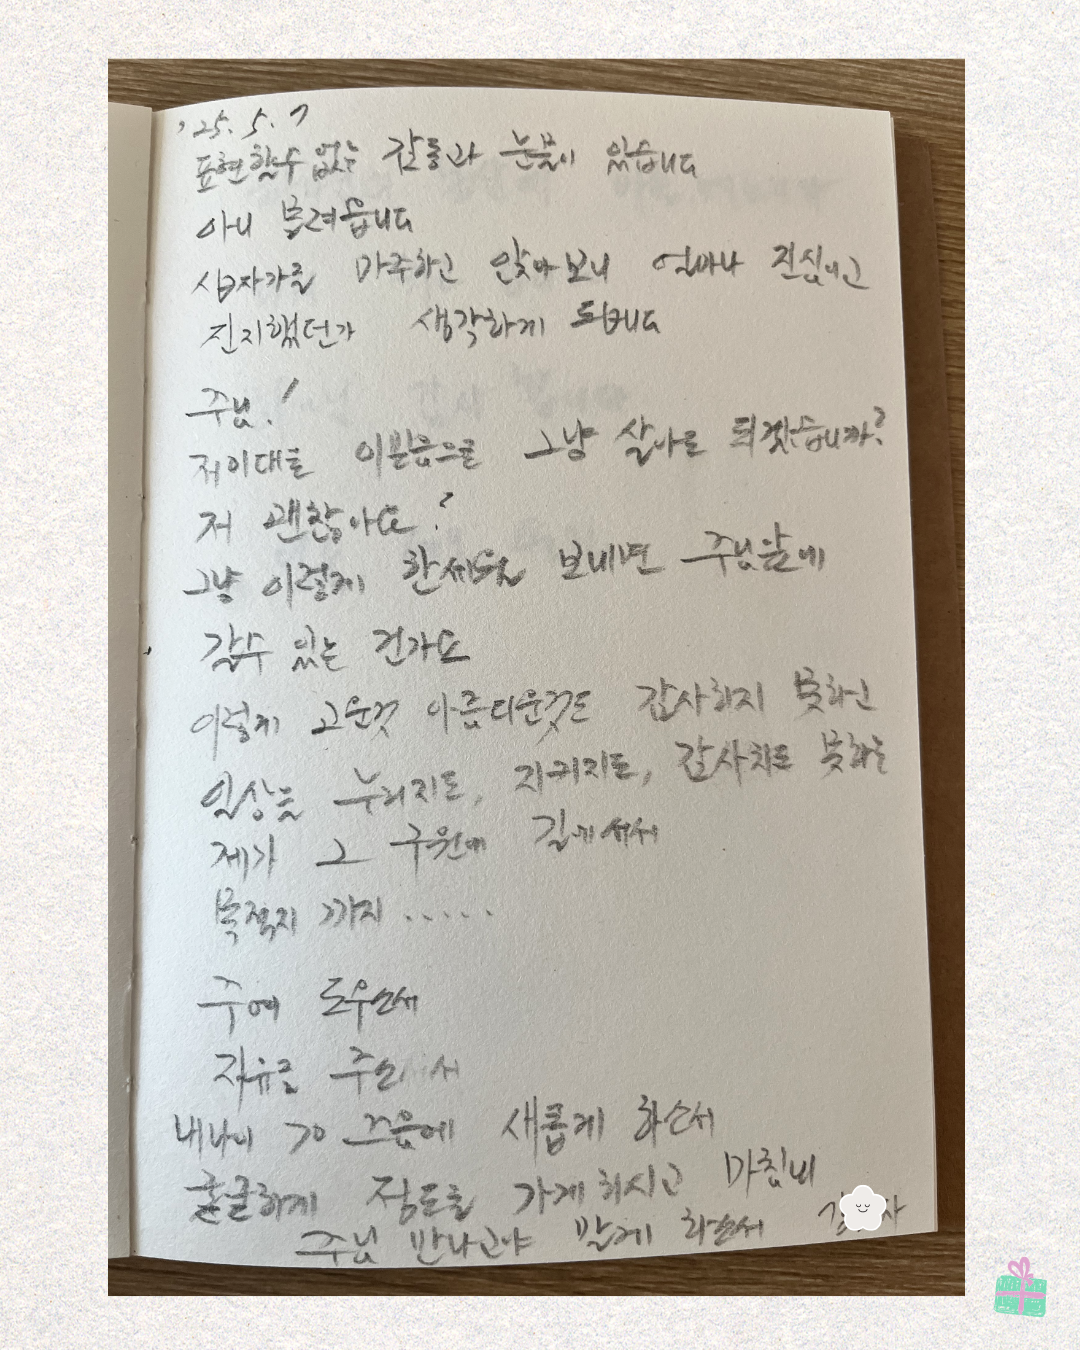 '25. 5. 7
표현할수 없는 감동과 눈물이 있습니다
아니 부려웁니다
십자가를 마주하고 앉아보니 얼마나 진심이고
진지했던가 생각하게 되빈니다
주님!
저이대로 이믿음으로 그냥 살아도 되겠습니까?
저 괜찮아요?
그냥 이렇게 한세월 보내면 주님앞에
갈수 있는 건가요
이렇게 고운것 아름다운것도 감사하지 못하고
일상을 누리지도, 지키지도, 감사치도 못하는
제가 그 구원에 길에서서
목적지 까지 .....
주여 도우소서
자유를 주소서
내나이 70 즈음에 새롭게 하소서
굴굴하게 정도를 가게하시고 마침내
주님 만나고야 말게 하소서